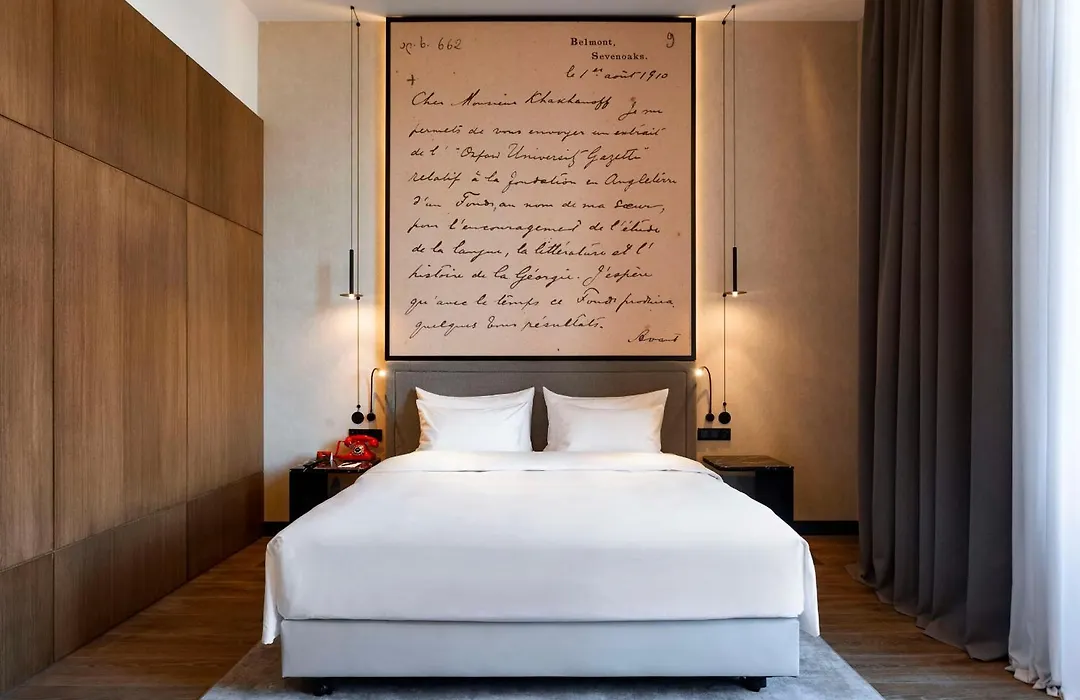 ალ. ხ. 662
9
Belmont,
Sevenoaks.
le 1er août 1910
Cher Monsieur Khakhanoff
Je me
permets de vous envoyer un extrait
de l' "Oxford University Gazette"
relatif à la fondation en Angleterre
d'un Fonds, au nom de ma sœur,
pour l'encouragement de l'étude
de la langue, la littérature et l'
histoire de la Géorgie. J'espère
qu'avec le temps ce Fonds produira
quelques bons résultats.
Avant